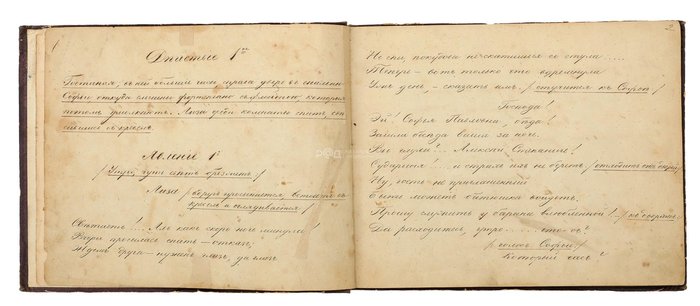 1
Дѣйствіе 1ое
Гостиная, въ ней большіе часы, справа дверь въ спальню
Софьи, откуда слышно фортепіано съ флейтою, которыя
потомъ умолкаютъ. Лиза среди комнаты спитъ, свѣ-
сившись съ креселъ.
Явленіе 1е
/Утро, чуть день брезжитъ/
Лиза /вдругъ просыпается, встаетъ съ
креселъ и оглядывается/
Свѣтаетъ! Ахъ какъ скоро ночь минула!
Вчера просилась спать – отказъ;
Ждемъ друга – нуженъ глазъ, да глазъ
2
Не спи, покудова не скатишься со стула.....
Теперь – вотъ только что вздремнула
Ужъ день, – сказать имъ /стучится къ Софьѣ/
Господа!
Эй! Софья Павловна, бѣда!
Зашла бесѣда ваша за ночь.
Вы глухи?... Алексѣй Степанычъ!
Сударыня!... и страхъ ихъ не беретъ, /отходитъ отъ дверей/
Ну, гость не приглашенный
Быть можетъ батюшка войдетъ,
Прошу служить у барышни влюбленной! /къ дверямъ/
Да расходитесь, утро..... что-съ?
/голосъ Софьи/
Который часъ?